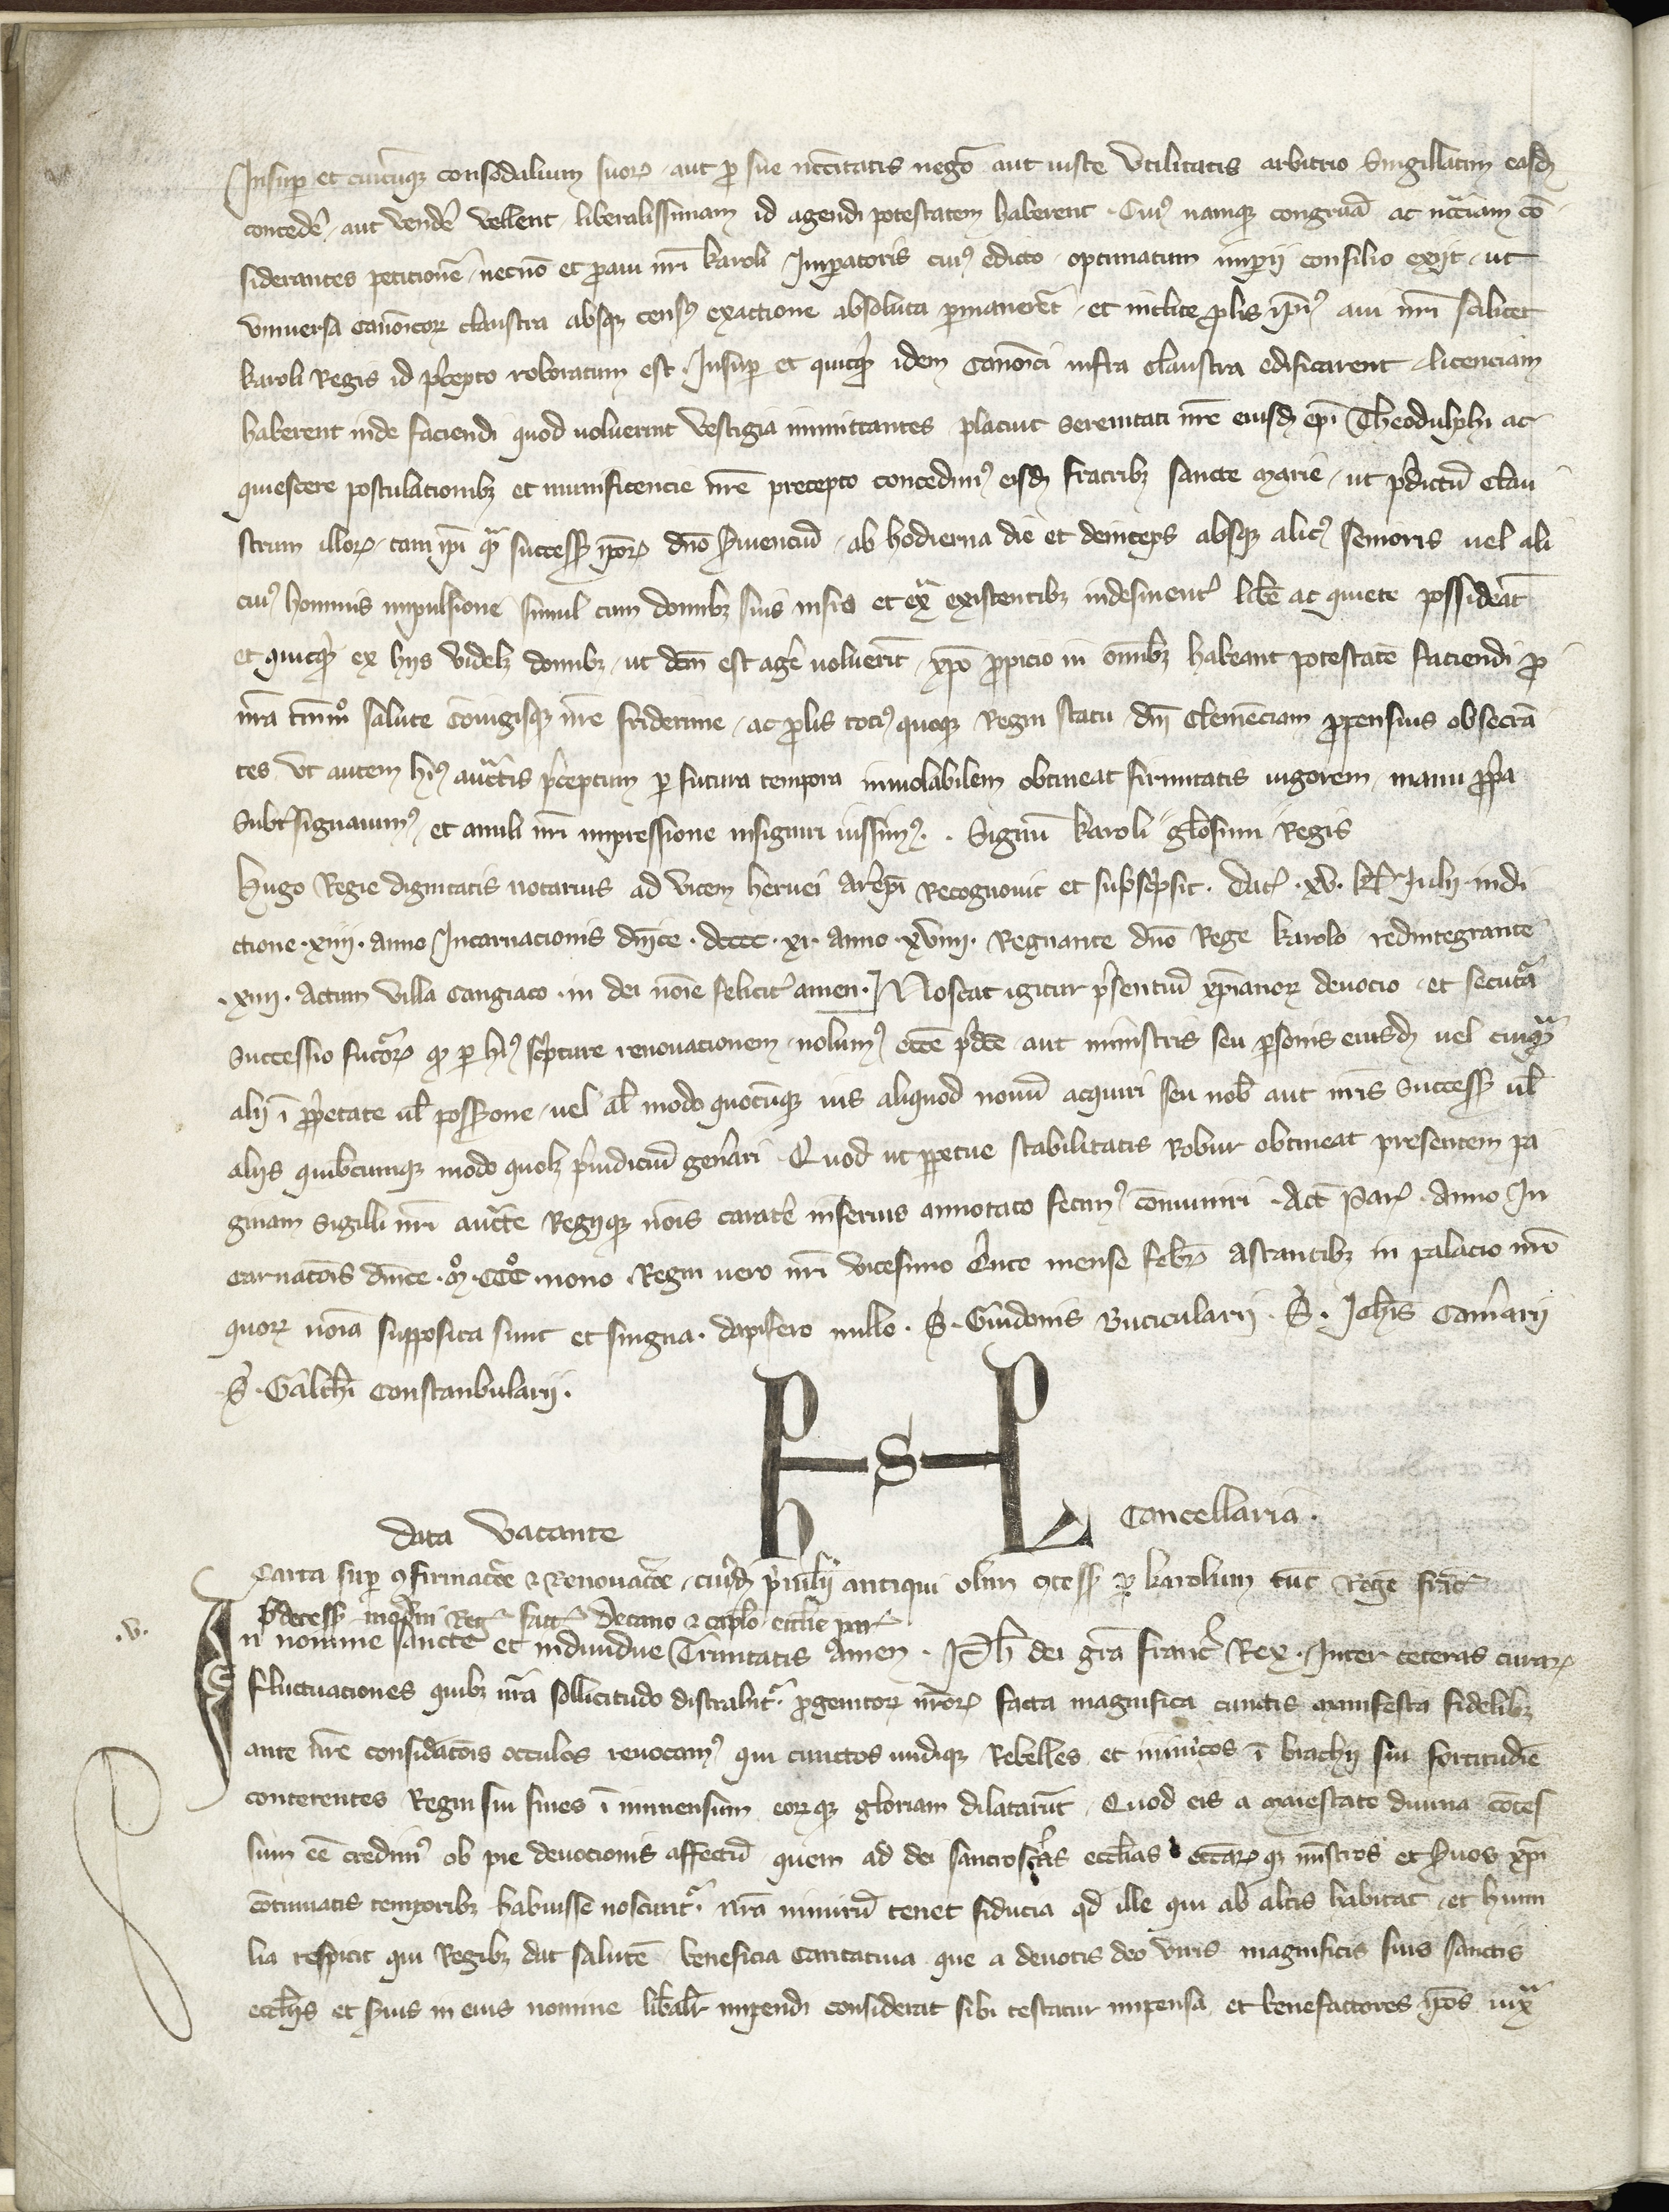 Insup et cuicūqz consodalium suoꝝ aut ꝓ sue nccitatis nego aut iuste vtilitatis arbitrio singillatim easd
concedē aut vendē vellent liberalissimam id agendi potestatem haberent. Cuiꝰ namqz congruā ac nccīam cō
siderantes peticionē necnō et ꝓaui nrī karoli Impatoris cuiꝰ edicto optimatum impii consilio exijt ut
vniuersa canoīcoꝝ claustra absqz censꝰ exactione absoluta pmanerēt et inclite ꝓlis ipīꝰ aui nrī scilicet
karoli Regis id pcepto roboratum est. Insup et quicqd idem canoīci infra claustra edificarent licenciam
haberent inde faciendi quod uoluerint vestigia inmittantes placuit serenitati nrē eiusd epī Theodulphi ac
quiescere postulacionibz et munificencie nrē precepto concedimꝰ eisd fratribz sancte marie ut pdictū clau
strum illoꝝ tam ipī qᵃ success ipōꝝ dnō seruienciū ab hodierna die et deinceps absqz alicꝰ senioris uel ali
cuiꝰ hominis impulsione simul cum domibz suis infra et exᵃ existentibz indesinentꝰ libē ac quiete possideāt
et quicqd ex hys videlz domibz ut dcm est agē uoluerīt xpō ꝓpicio in omībz habeant potestatē faciendi ꝓ
nrā tmmᵒ salute cōiugisqz nrē friderune ac ꝓlis tociꝰ quoqz Regni statu dnī clemēciam ꝓpensius obsecrā
tes vt autem hꝰ auctis pceptum p futura tempora inuiolabilem obtineat firmitatis uigorem manu ꝓpa
Subtsignauimꝰ et anuli nrī impressione insigniri iussimꝰ. Signū karoli glosimi Regis
Hugo Regie dignitatis notarius ad vicem heruei arepī Recognouit et supscpsit. Dat .xv. kl Iulij indi
ctione .xiiii. anno Incarnacionis dnīce .dcccc.xi. Anno .xviiii. Regnante dnō Rege karolo redintegrante
.xiiii. Actum villa Cangiaco in dei noīe felicitꝰ amen. Noscat igitur psentiū xpīanoꝝ deuocio et secutᵃ
Successio futoꝝ qd p hꝰ scpture renouacionem nolumꝰ eccē pdcē aut ministris seu psonis eiusd uel cuiqᵃ
alij ī ꝓpetate ul possione uel al modo quocūqz ius aliquod nouū acquiri seu nob aut nrīs success ul
alijs quibcumqz modo quolz piudiciū gen̄ari. Quod ut ppetue stabilitatis Robur obtineat presentem pa
ginam sigilli nrī auctte Regijqz noīs caratē inferius annotato fecimꝰ cōmuniri. Act Par. Anno In
carnatōis dnīce .Mᵒ.CCCᵒ nono. Regni uero nrī vicesimo quīto mense febꝝ Astantibz in palacio nrō
quoꝝ noīa supposita sunt et singna. dapifero nullo. S. Guidonis Buticularij. S. Johīs Camerarij
S. Galcheri Constanbularij.
S
Data vacante Cancellaria.
Carta sup ꝯfirmacōe ⁊ Renouacōe cuiusd priuilij antiqui olim ꝯcess p karolum tūc Regē franc
pdecess modni Regꝰ fact Decano ⁊ caplo ecclīe par
.v.
In nomine sancte et indiuidue Trinitatis Amen. Ph dei grā francꝰ Rex. Inter ceteras curaꝝ
fluctuaciones quibz nrā sollicitudo distrahitᵃ. ꝓgenitoꝝ nrōꝝ facta magnifica cunctis manifesta fidelibz
ante nrē considatōis occulos reuocamꝰ qui cunctos undiqz Rebelles et inimicos ī brachij sui fortitudīe
conterentes Regni sui fines ī inmensum eoꝝqz gloriam dilatarūt. Quod eis a maiestate diuina cōces
sum eē credimꝰ ob pie deuocionis affectū quem ad dei sancrosctās ecclīas eccaꝝqz mīstros et suos xpī
cōtinuatis temporibz habuisse noscuntᵃ. Nrā nimirū tenet fiducia qd ille qui ab altis habitat et humi
lia respicit qui Regibz dat salutē beneficia caritatiua que a deuotis deo viris magnificis suis sanctis
ecclīis et suis in eius nomine libalr impendi considerat sibi testatur impensa et benefactores ipōs iuxᵃ